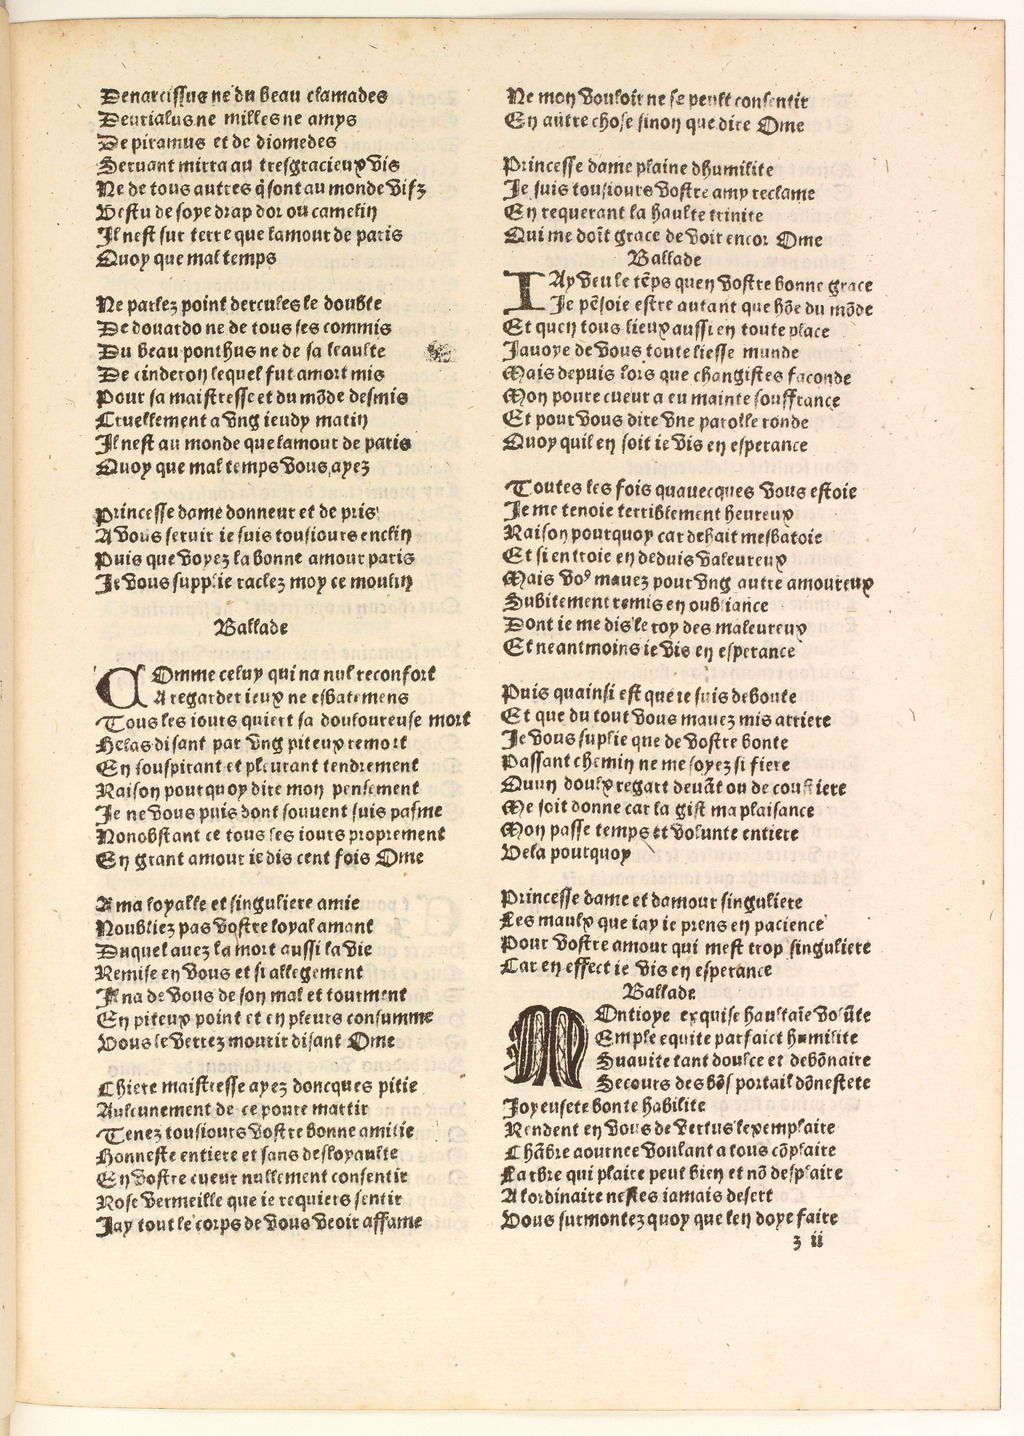 Denarcissus ne du beau clamades
Deurialus ne milles ne amys
De piramus et de diomedes
Seruant mirra au tresgracieux vis
Ne de tous autres q̃ sont au monde vifz
Vestu de soye drap dor ou camelin
Il nest sur terre que lamour de paris
Quoy que mal temps
Ne parlez point dercules le double
De douardo ne de tous ses commis
Du beau ponthus ne de sa leaulte
De cinderon lequel fut a mort mis
Pour sa maistresse et du mõde desmis
Cruellement a vng ieudy matin
Il nest au monde que lamour de paris
Quoy que mal temps vous ayez
Princesse dame donneur et de pris
A vous seruir ie suis tousiours enclin
Puis que voyez la bonne amour paris
Je vous supplie raclez moy ce moulin
Ballade
COmme celuy qui na nul reconfort
A regarder ieux ne esbatemens
Tous les iours quiert sa douloureuse mort
Helas disant par vng piteux remort
En souspirant et pleurant tendrement
Raison pourquoy dire mon pensement
Je ne vous puis dont souuent suis pasme
Nonobstant ce tous les iours proprement
En grant amour ie dis cent fois Ome
A ma loyalle et singuliere amie
Noubliez pas vostre loyal amant
Duquel auez la mort aussi la vie
Remise en vous et si allegement
Il na de vous de son mal et tourment
En piteux point et en pleurs consumme
Vous le verrez mourir disant Ome
Chiere maistresse ayez doncques pitie
Aulcunement de ce poure martir
Tenez tousiours vostre bonne amitie
Honneste entiere et sans desloyaulte
En vostre cueur nullement consentir
Rose vermeille que ie requiers sentir
Jay tout le corps de vous veoir affame
Ne mon vouloir ne se peult consentir
En autre chose sinon que dire Ome
Princesse dame plaine dhumilite
Je suis tousiours vostre amy reclame
En requerant la haulte trinite
Qui me doit grace de voir encor Ome
Ballade
IAy veu le tẽps quen vostre bonne grace
Je pẽsoie estre autant que hõe du mõde
Et quen tous lieux aussi en toute place
Jauoye de vous toute liesse munde
Mais depuis lors que changistes faconde
Mon poure cueur a eu mainte souffrance
Et pour vous dire vne parolle ronde
Quoy quil en soit ie vis en esperance
Toutes les fois quauecques vous estoie
Je me tenoie terriblement heureux
Raison pourquoy car dehait mesbatoie
Et si entroie en deduis valeureux
Mais vo⁹ mauez pour vng autre amoureux
Subitement remis en oubliance
Dont ie me dis le roy des maleureux
Et neantmoins ie vis en esperance
Puis quainsi est que ie suis deboute
Et que du tout vous mauez mis arriere
Je vous suplie que de vostre bonte
Passant chemin ne me soyez si fiere
Quun doulx regart deuãt ou de coustiere
Me soit donne car la gist ma plaisance
Mon passe temps et volunte entiere
Vela pourquoy
Princesse dame et damour singuliere
Les maulx que iay ie prens en pacience
Pour vostre amour qui mest trop singuliere
Car en effect ie vis en esperance
Ballade
MOntioye exquise haultaĩe volũte
Emple equite parfaict humilite
Suauite tant doulce et debõnaire
Secours des bõs portail dõnestete
Joyeusete bonte habilite
Rendent en vous de vertus lexemplaire
Chãbre aournee voulant a tous cõplaire
Larbre qui plaire peut bien et nõ desplaire
A lordinaire nestes iamais desert
Vous surmontez quoy que len doye faire
z ii